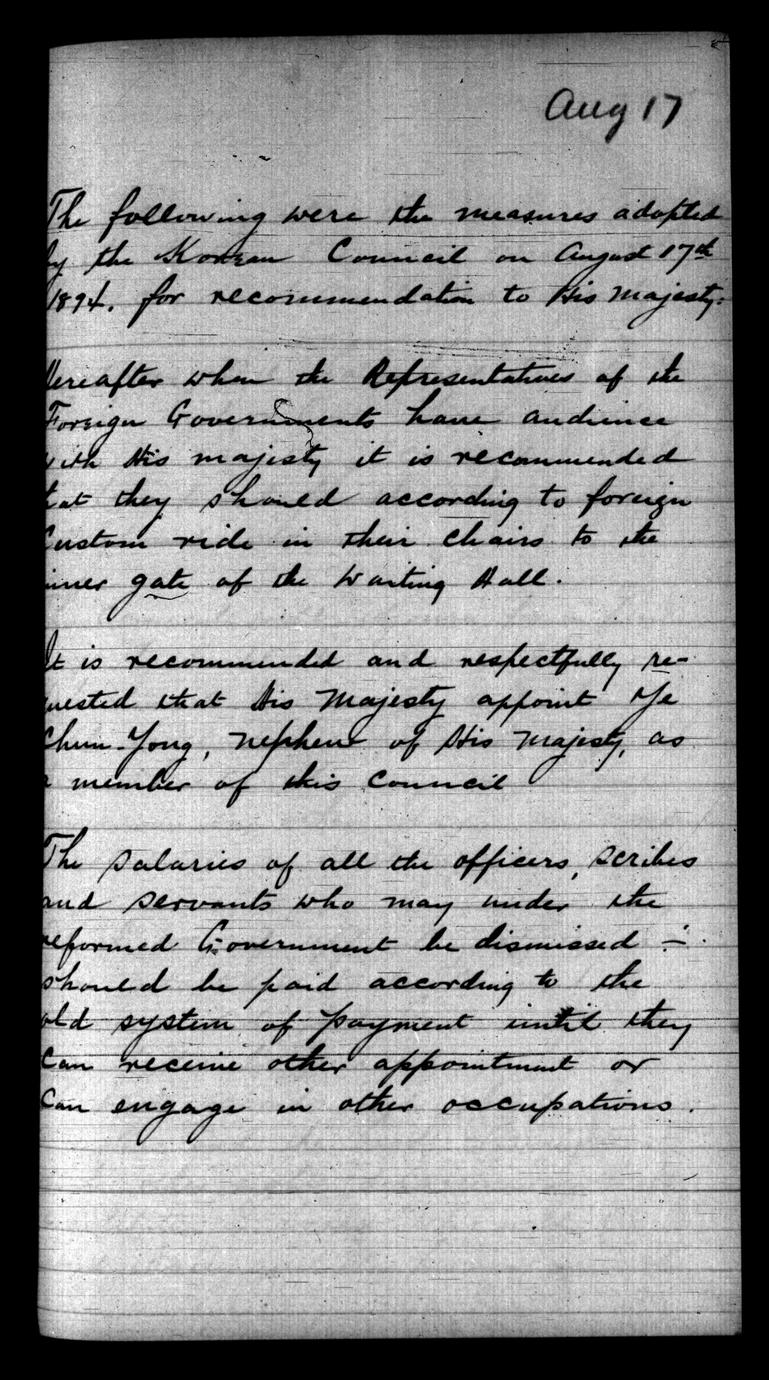 Aug 17
The following were the measures adopted
by the Korean Council on August 17th
1894. for recommendation to His Majesty:
Hereafter when the Representatives of the
Foreign Governments have audience
with His majesty it is recommended
that they should according to foreign
Custom ride in their chairs to the
inner gate of the Waiting Hall.
It is recommended and respectfully re-
quested that His Majesty appoint Ye
Chun-Yong, nephew of His Majesty, as
a member of this Council
The salaries of all the officers, scribes
and servants who may under the
reformed Government be dismissed -
should be paid according to the
old system of payment until they
can receive other appointment or
can engage in other occupations.